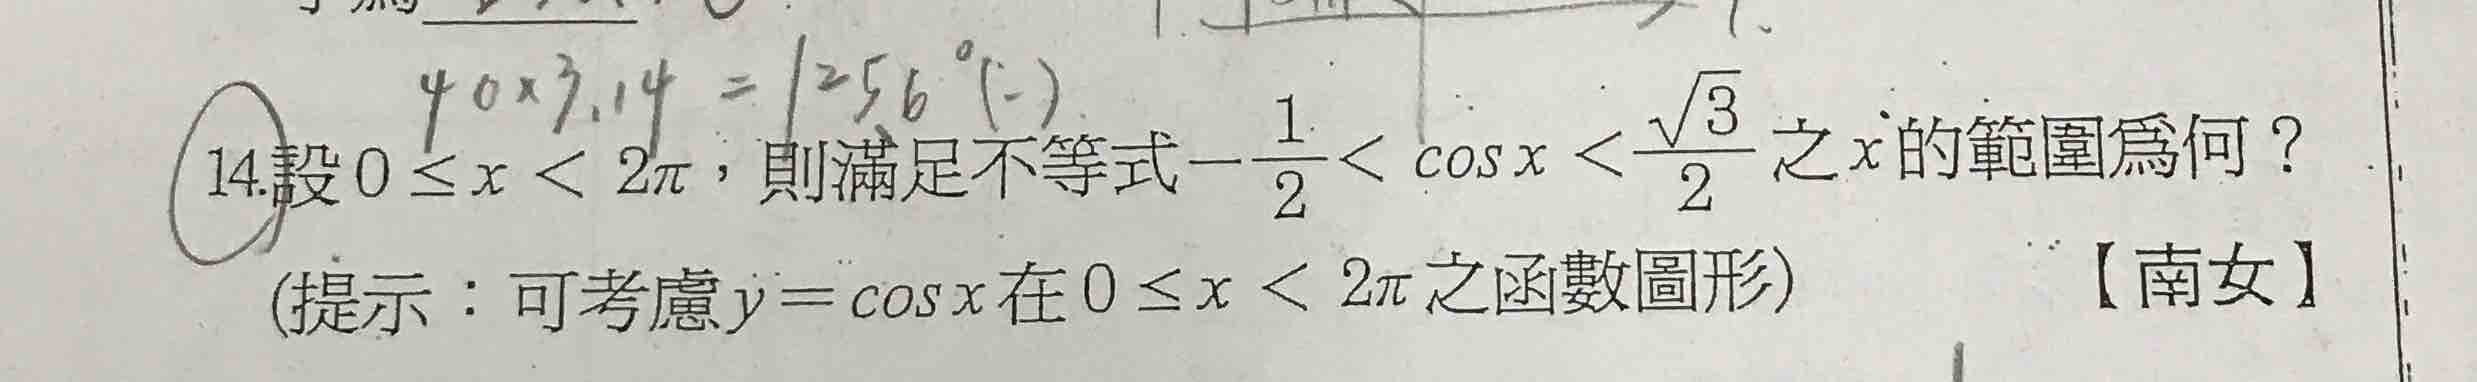 40×3.14 = 1256°(-)
14.設 0 ≤ x < 2π，則滿足不等式 -\frac{1}{2} < cos x < \frac{\sqrt{3}}{2} 之 x 的範圍爲何？
(提示：可考慮 y = cos x 在 0 ≤ x < 2π 之函數圖形) 【南女】